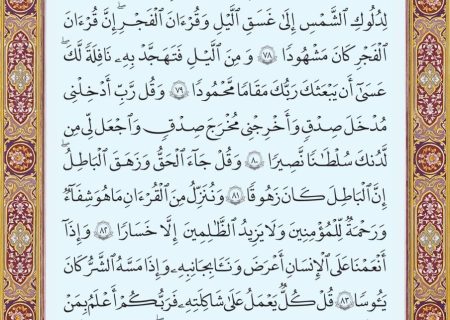 لِدُلُوكِ ٱلشَّمْسِ إِلَىٰ غَسَقِ ٱلَّيْلِ وَقُرْءَانَ ٱلْفَجْرِ ۖ إِنَّ قُرْءَانَ
ٱلْفَجْرِ كَانَ مَشْهُودًا ٧٨ وَمِنَ ٱلَّيْلِ فَتَهَجَّدْ بِهِۦ نَافِلَةً لَّكَ
عَسَىٰٓ أَن يَبْعَثَكَ رَبُّكَ مَقَامًا مَّحْمُودًا ٧٩ وَقُل رَّبِّ أَدْخِلْنِى
مُدْخَلَ صِدْقٍ وَأَخْرِجْنِى مُخْرَجَ صِدْقٍ وَٱجْعَل لِّى مِن
لَّدُنكَ سُلْطَٰنًا نَّصِيرًا ٨٠ وَقُلْ جَآءَ ٱلْحَقُّ وَزَهَقَ ٱلْبَٰطِلُ ۚ
إِنَّ ٱلْبَٰطِلَ كَانَ زَهُوقًا ٨١ وَنُنَزِّلُ مِنَ ٱلْقُرْءَانِ مَا هُوَ شِفَآءٌ
وَرَحْمَةٌ لِّلْمُؤْمِنِينَ وَلَا يَزِيدُ ٱلظَّٰلِمِينَ إِلَّا خَسَارًا ٨٢ وَإِذَآ
أَنْعَمْنَا عَلَى ٱلْإِنسَٰنِ أَعْرَضَ وَنَـَٔا بِجَانِبِهِۦ وَإِذَا مَسَّهُ ٱلشَّرُّ كَانَ
يَـُٔوسًا ٨٣ قُلْ كُلٌّ يَعْمَلُ عَلَىٰ شَاكِلَتِهِۦ فَرَبُّكُمْ أَعْلَمُ بِمَنْ